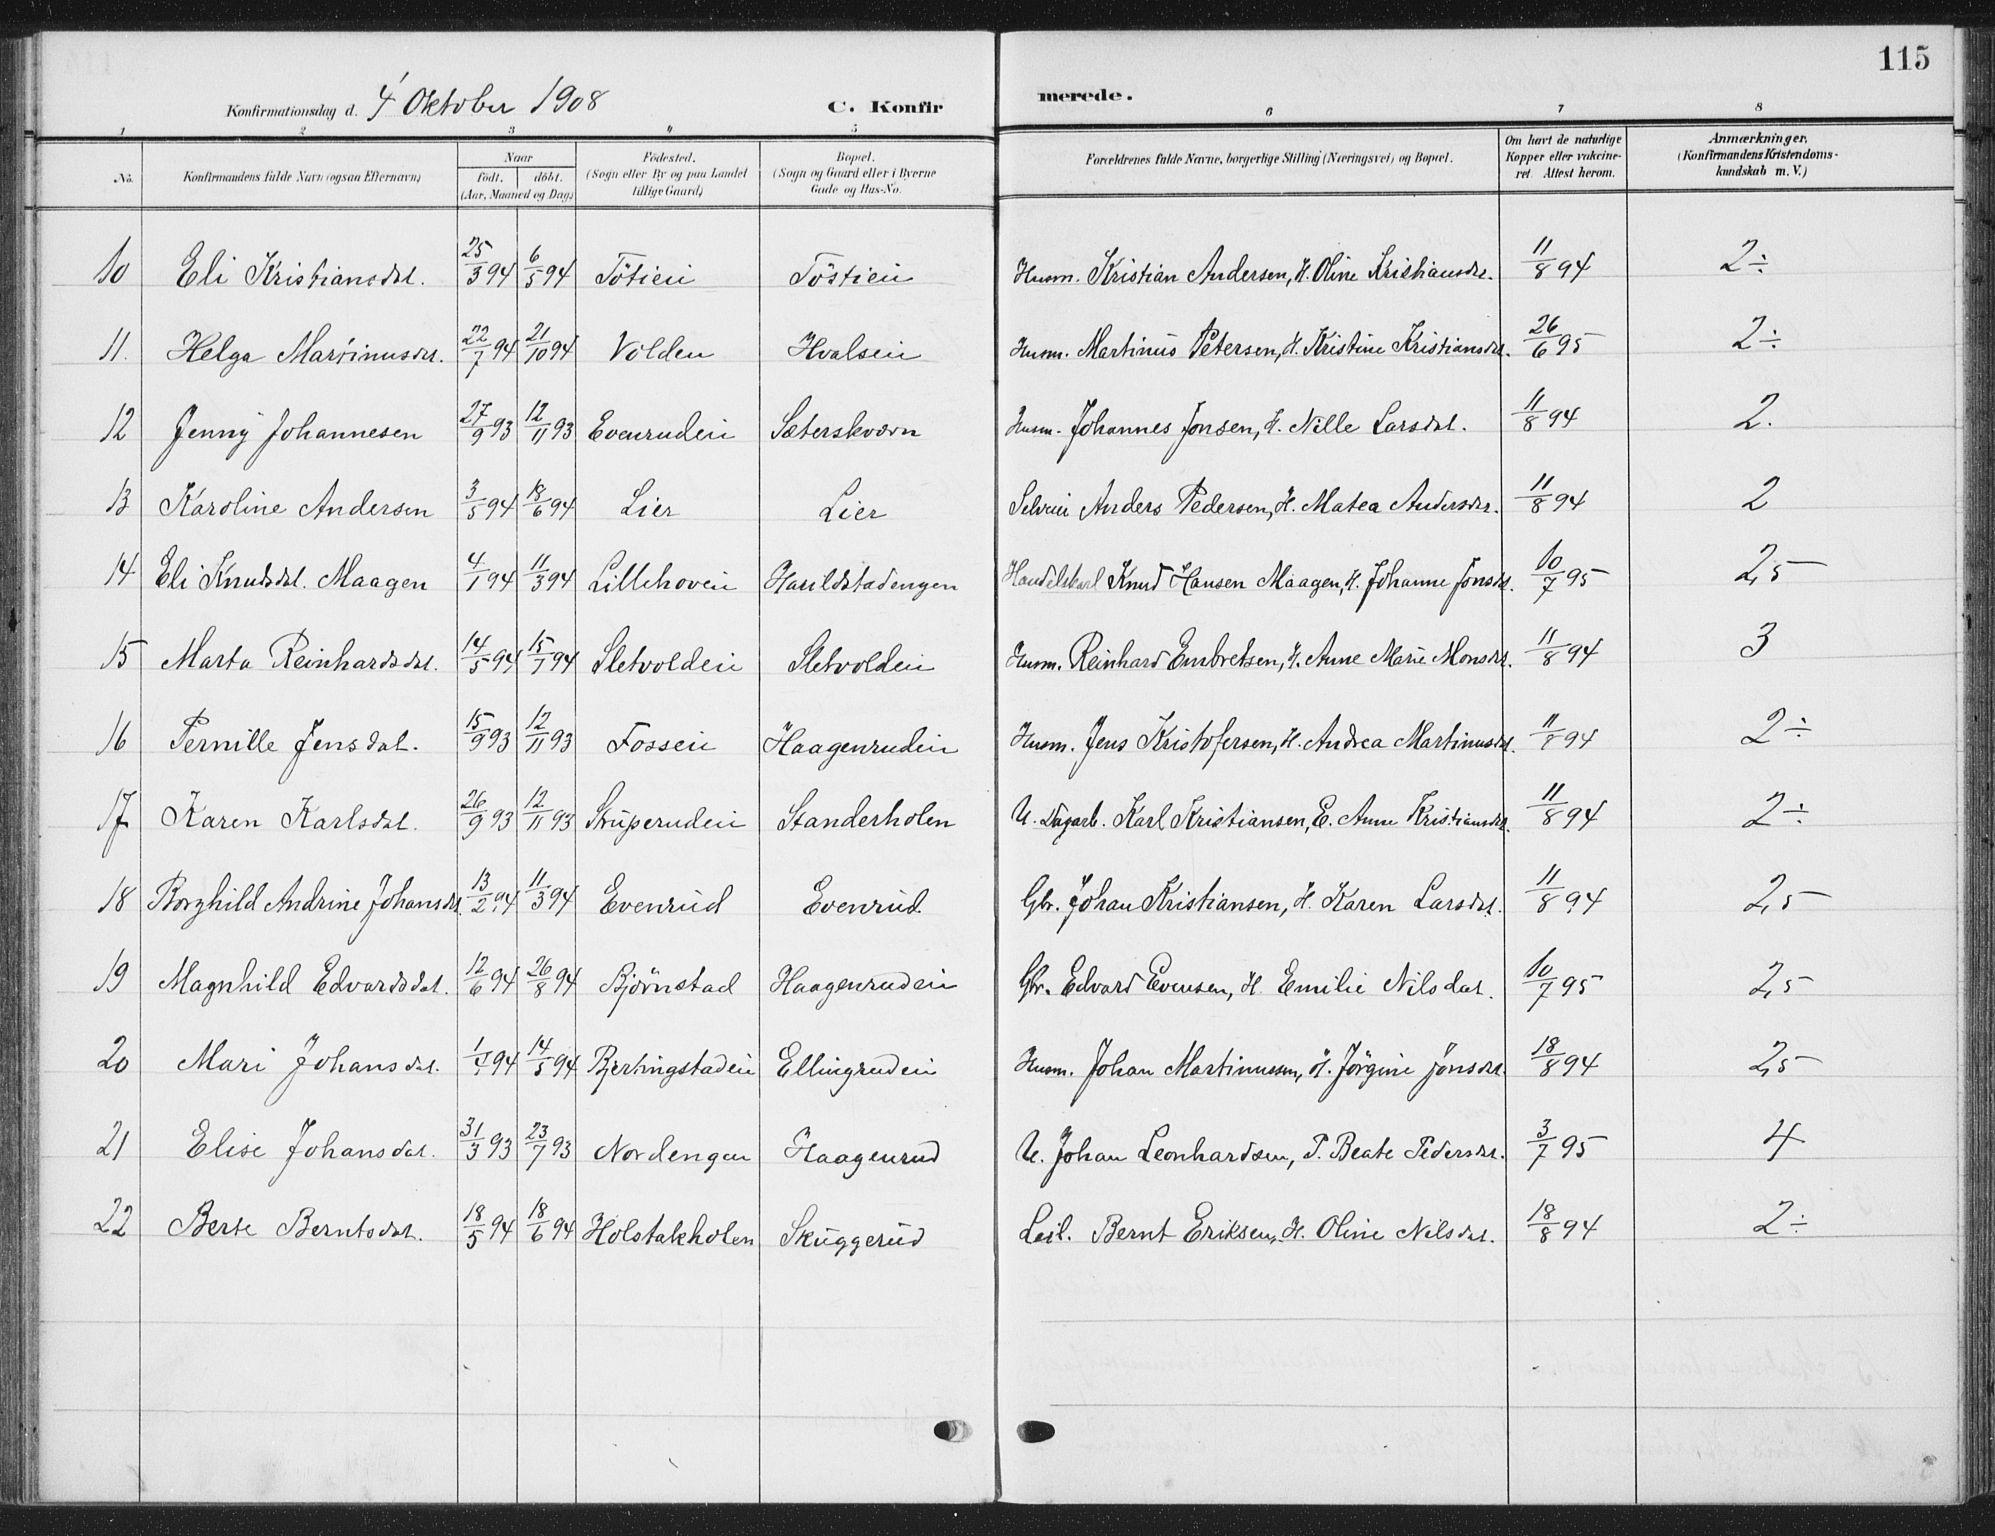 115
Konfirmationsdag d. 4 Oktober 1908 C. Konfir merede.
1 2 3 4 5 6 7 8
No. Konfirmandens fulde Navn (ogsaa Efternavn) Naar født. døbt. (Aar, Maaned og Dag) Fødested. (Sogn eller By og paa Landet tillige Gaard) Bopæl. (Sogn og Gaard eller i Byerne Gade og Hus-No. Forældrenes fulde Navne, borgerlige Stilling (Næringsvei) og Bopæl. Om havt de naturlige Kopper eller vakcineret. Attest herom. Anmærkninger. (Konfirmandens Kristendomskundskab m. V.)
10 Eli Kristiansdat. 25/3 94 6/5 94 Töstien Töstien Husm. Kristian Andersen, H. Oline Kristiansdat. 11/8 94 2÷
11. Helga Martinusdat. 22/7 94 21/10 94 Volden Hvalsein Husm. Martinus Petersen, H. Kristine Kristiansdat. 26/6 95 2÷
12 Jenny Johannesen 27/9 93 12/11 93 Evenrudein Sæterskværn Husm. Johannes Jonsen, H. Nille Larsdat. 11/8 94 2.
13 Karoline Andersen 3/5 94 18/6 94 Lier Lier Selveier Anders Pedersen, H. Matea Andersdat. 11/8 94 2
14 Eli Knudsdat. Maagen 4/1 94 11/3 94 Lillehovein Harildstadengen Handelskarl Knud Hansen Maagen, H. Johanne Jonsdat. 10/7 95 2,5
15 Marta Reinhardsdat. 14/5 94 15/7 94 Sletvoldein Sletvoldein Husm. Reinhard Embretsen, H. Anne Marie Monsdat. 11/8 94 3
16 Pernille Jensdat. 15/9 93 12/11 93 Fossein Haagenrudein Husm. Jens Kristofersen, H. Andrea Martinusdat. 11/8 94 2÷
17 Karen Karlsdat. 26/9 93 12/11 93 Struperudein Standerholen U. Dagarb. Karl Kristiansen, E. Anne Kristiansdat. 11/8 94 2÷
18 Borghild Andrine Johansdat. 13/2 94 11/3 94 Evenrud Evenrud. Gbr. Johan Kristiansen, H. Karen Larsdat. 11/8 94 2,5
19 Magnhild Edvardsdat. 12/6 94 26/8 94 Bjørnstad Haagenrudein Gbr. Edvard Evensen, H. Emilie Nilsdat. 10/7 95 2,5
20 Mari Johansdat. 1/4 94 14/5 94 Bjerkingstadein Ellingrudein Husm. Johan Martinussen, H. Jörgine Jonsdat. 18/8 94 2,5
21 Elise Johansdat. 31/3 93 23/7 93 Nordengen Haagenrud U. Johan Leonhardsen, P. Beate Pedersdat. 3/7 95 4
22 Berte Berntsdat. 18/5 94 18/6 94 Holstakholen Skuggerud Leil. Bernt Eriksen, H. Oline Nilsdat. 18/8 94 2÷